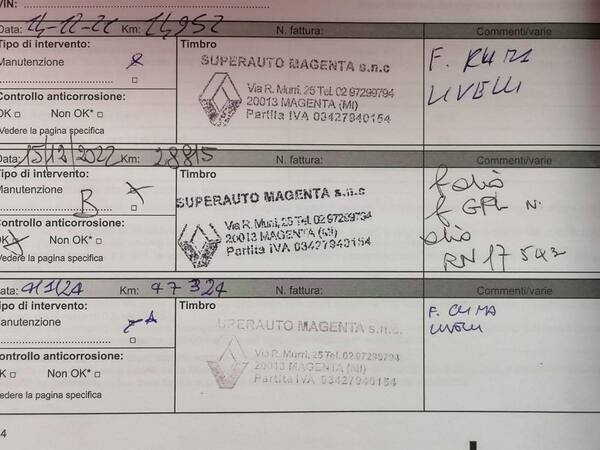 VIN:
Data: 14-12-21 Km: 14,952 N. fattura: Commenti/varie
Tipo di intervento:
Timbro
Manutenzione
SUPERAUTO MAGENTA s.n.c
Via R. Murri, 25 Tel. 02 97299794
20013 MAGENTA (MI)
Partita IVA 03427940154
F.
LIVELLI
Controllo anticorrosione:
OK Non OK*
Vedere la pagina specifica
Data: 15/12/2022 Km: 28815 N. fattura: Commenti/varie
Tipo di intervento:
Timbro
Manutenzione B
SUPERAUTO MAGENTA s.n.c
Via R. Murri, 25 Tel. 02 97299794
20013 MAGENTA (MI)
Partita IVA 03427940154
f olio
f GPL N.
olio
RN 17 543
Controllo anticorrosione:
OK Non OK*
Vedere la pagina specifica
Data: Km: 47324 N. fattura: Commenti/varie
Tipo di intervento:
Timbro
Manutenzione
SUPERAUTO MAGENTA s.n.c.
Via R. Murri, 25 Tel. 02 97299794
20013 MAGENTA (MI)
Partita IVA 03427940154
F. CLIMA
LIVELLI
Controllo anticorrosione:
OK Non OK*
Vedere la pagina specifica
4